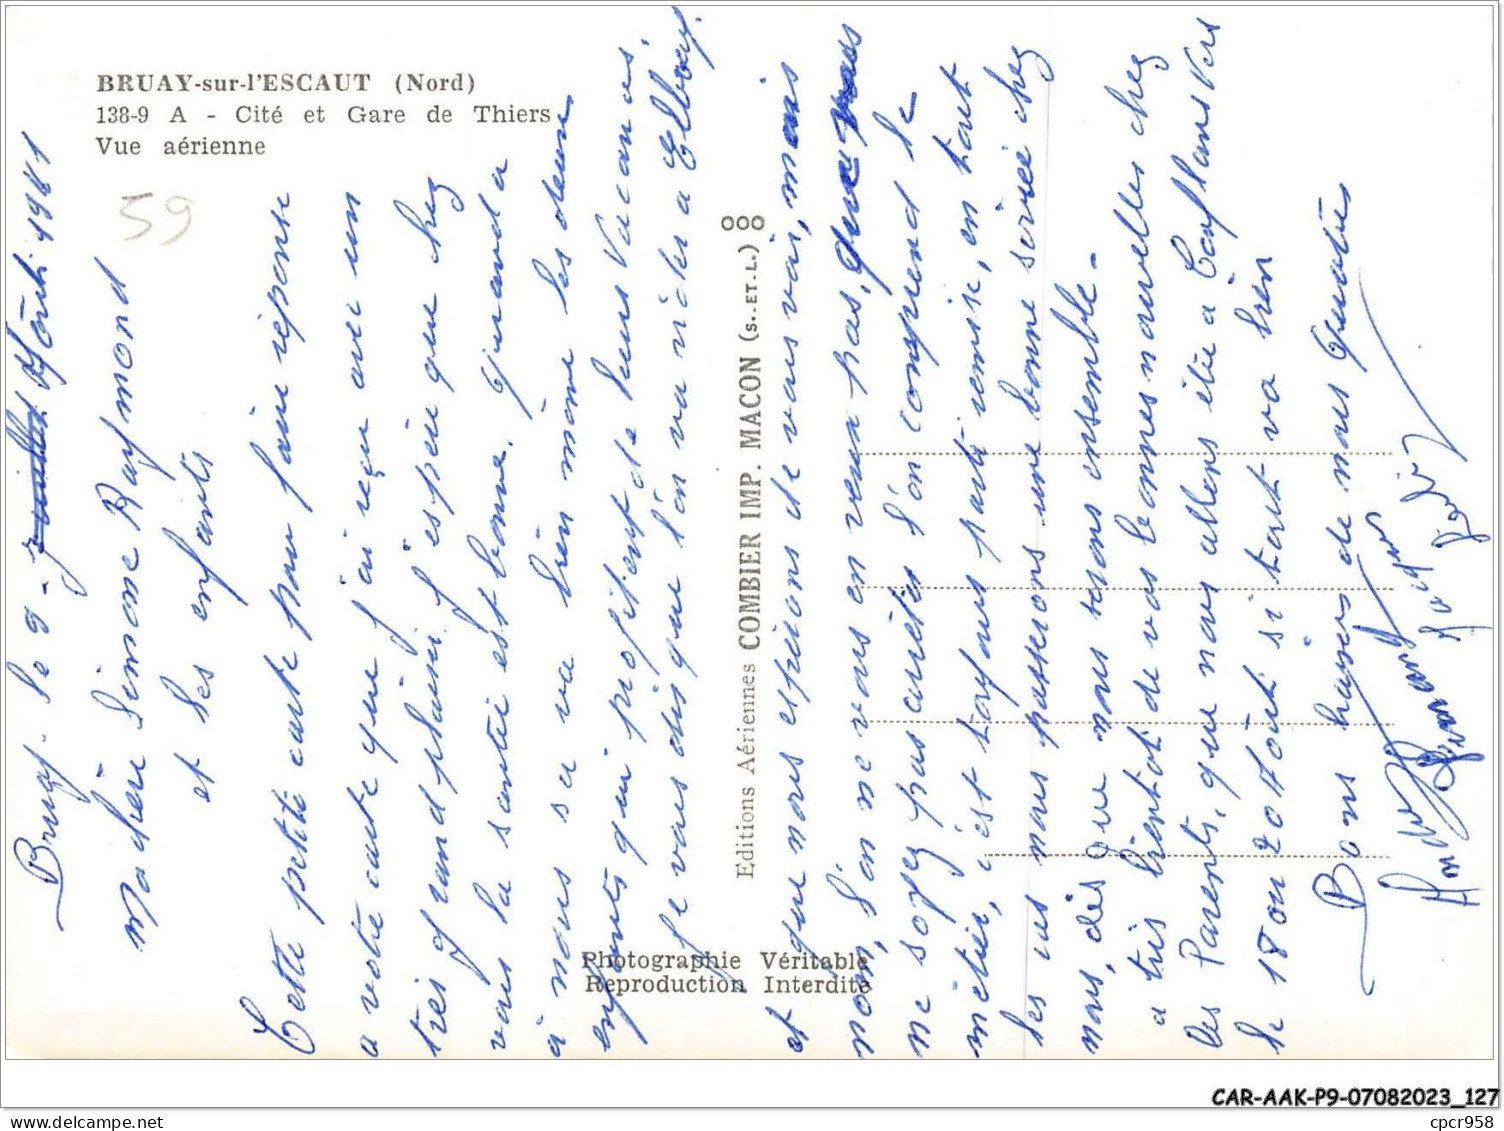 BRUAY-sur-l'ESCAUT (Nord)
138-9 A - Cité et Gare de Thiers
Vue aérienne
59
Bruay. le 9 - juillet Août 1981
Ma chère Simone Raymond
et les enfants
Cette petite carte pour faire réponse
a votre carte que j'ai reçu avec un
très grand plaisir, j'espère que chez
vous la santé est bonne. quand a
à nous sa va bien même les deux
enfants qui profitent de leurs vacances,
je vous dis que l'on va vider a
et que nous espérions de vous voir, mais
non, l'on ne vous en veux pas, que vous
ne soyez pas arrêtés l'on comprend le
métier, c'est toujours partie remise, en tout
les cas nous passerons une bonne soirée chez
nous, dès que nous serons ensemble -
a très bientot de vos bonnes nouvelles chez
les Parents, que nous allons être à Conflans vers
le 18 ou 20 Août si tout va bien
Bons baisers de nous quatres
Editions Aériennes COMBIER IMP. MACON (S.-ET-L.)
Photographie Véritable
Reproduction Interdite
CAR-AAK-P9-07082023_127
cpcr958